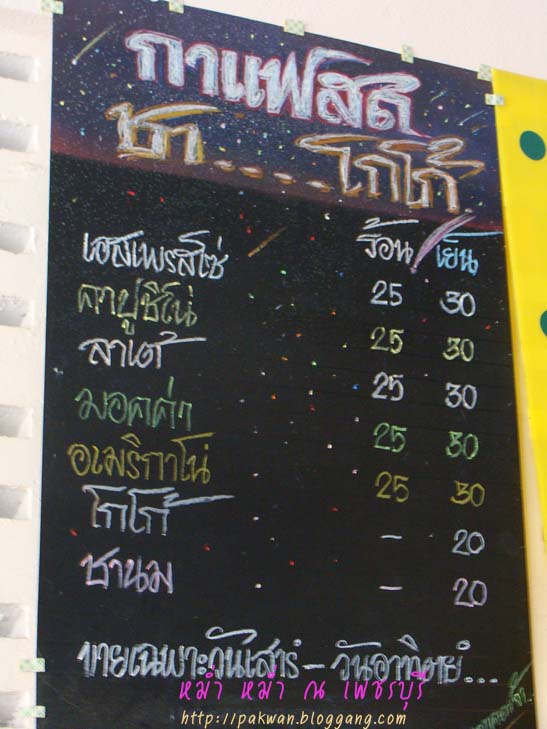 กาแฟสด
ชา....โกโก้
ร้อน/เย็น
เอสเพรสโซ่ 25 30
คาปูชิโน่ 25 30
ลาเต้ 25 30
มอคค่า 25 30
อเมริกาโน่ 25 30
โกโก้ - 20
ชานม - 20
ขายเฉพาะวันเสาร์ - วันอาทิตย์...
หม่ำ หม่ำ ณ เพชรบุรี
http://pakwan.bloggang.com